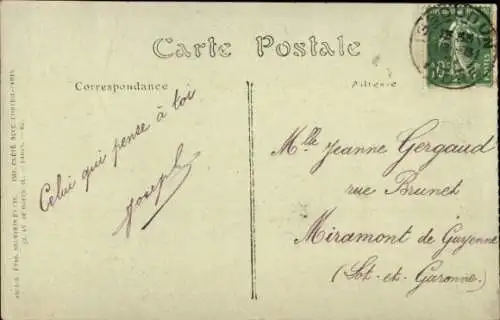 Carte Postale
Correspondance
Adresse
ISSOUDUN
Celui qui pense à toi
Joseph
Mlle Jeanne Gergaud
rue Brunet
Miramont de Guyenne
(Lot-et-Garonne)